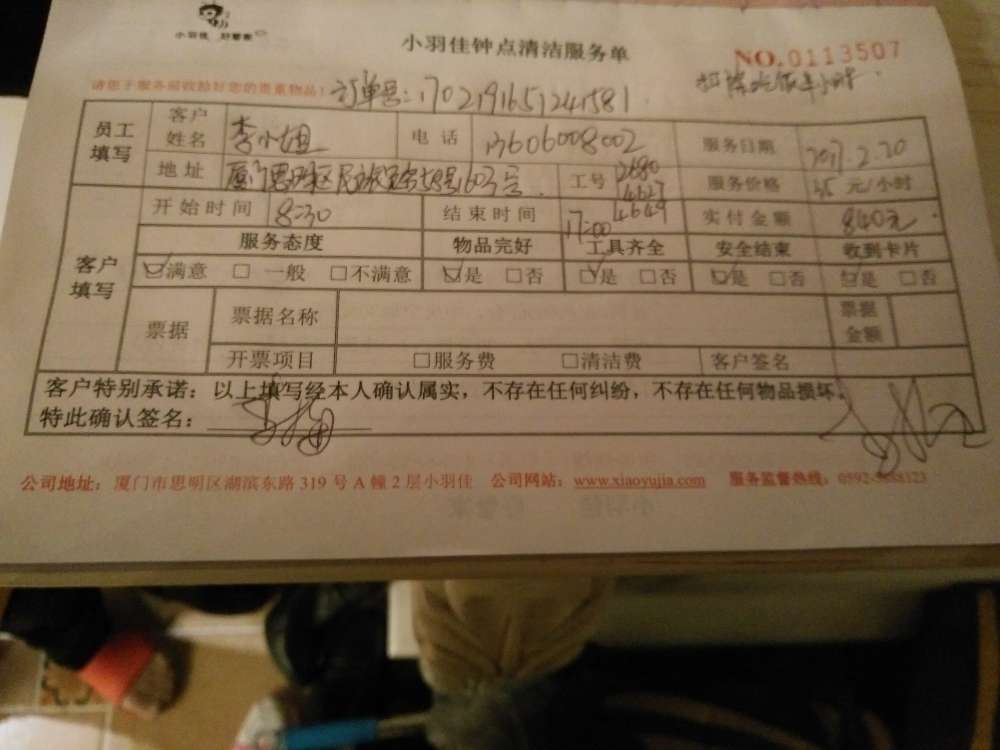 小羽佳 好管家
小羽佳钟点清洁服务单
NO.0113507
请您于服务前收捡好您的贵重物品!
订单号:1702191651241581
扣除吃饭半小时.
员工填写 客户姓名 李小姐 电话 13606008002 服务日期 2017.2.20
地址 工号 2680 4627 4649 服务价格 35 元/小时
客户填写 开始时间 8:30 结束时间 17:00 实付金额 840元
服务态度 物品完好 工具齐全 安全结束 收到卡片
满意 □ 一般 □不满意 是 □否 是 □否 是 □否 是 □否
票据 票据名称 票据金额
开票项目 □服务费 □清洁费 客户签名
客户特别承诺:以上填写经本人确认属实,不存在任何纠纷,不存在任何物品损坏。
特此确认签名:
公司地址:厦门市思明区湖滨东路 319 号 A 幢 2 层小羽佳 公司网站:www.xiaoyujia.com 服务监督热线: